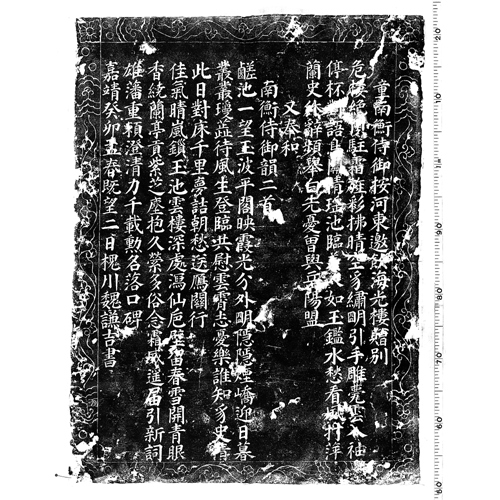 童南衡侍御按河東邀飲海光樓贈別
危樓絕閣駐霜旌彩拂晴空豸繡明引手雕甍雲入袖
停杯語自情瑤池臨如玉鑑水愁看風打萍
蘭史絲辭頻舉白先憂曾與岳陽盟
又奉和
南衡侍御韻二首
鹺池一望玉波平閣映霞光分外明隱隱煙嶠近日暮
叢叢瓊蕊待風生登臨共慰雲霄志憂樂誰知豸史情
此日對床千里夢詰朝愁送鴈關行
佳氣晴嵐鎖玉池雲樓深處瀉仙卮庭留春雪開青眼
香繞蘭亭貢紫芝座抱久縈多俗念霜威進屆引新詞
雄藩重賴澄清力千載勲名落口碑
嘉靖癸卯孟春既望二日槐川魏謙吉書